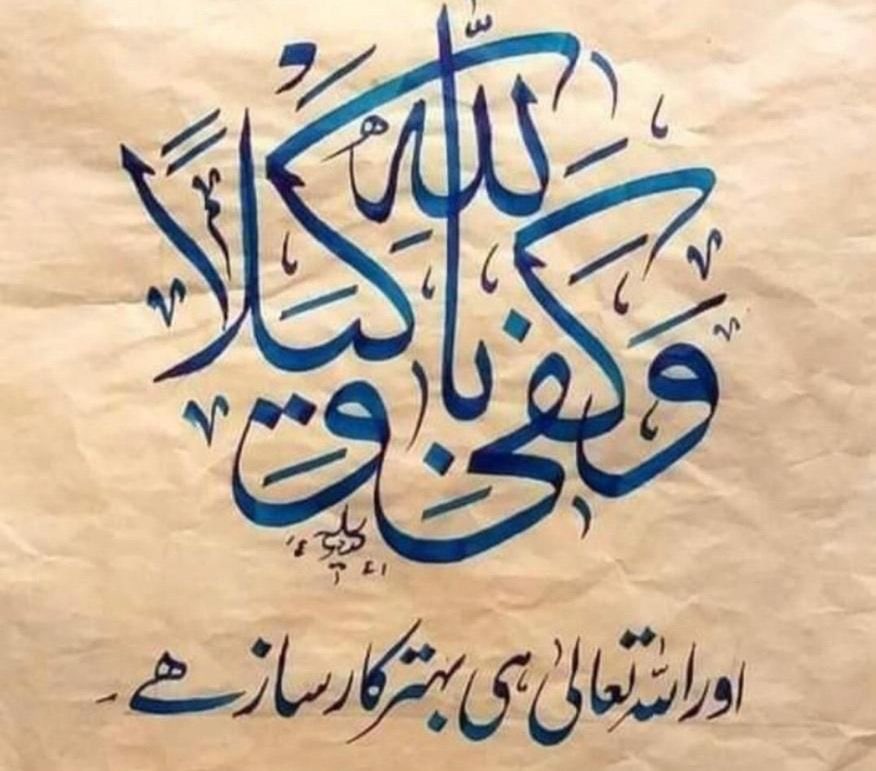 وَكَفَىٰ بِاللَّهِ وَكِيلًا
اور اللہ تعالیٰ ہی بہتر کارساز ھے۔